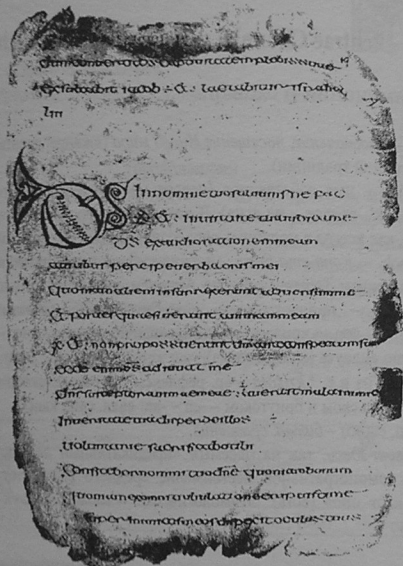 captiuitatem plebis suae
exsultabit iacob & laetabitur israhel
liii
DS in nomine tuo saluum me fac
& in uirtute tua iudica me
ds exaudi orationem meam
auribus percipe uerba oris mei
quoniam alieni insurrexerunt aduersum me
& fortes quaesierunt animam meam
& non proposuerunt dm ante conspectum suum
ecce enim ds adiuuat me
dns susceptor animae meae auerte mala inimicis
in ueritate tua disperde illos
uoluntarie sacrificabo tibi
confitebor nomini tuo dne quoniam bonum
quoniam ex omni tribulatione eripuisti me
super inimicos dispexit oculus tuus